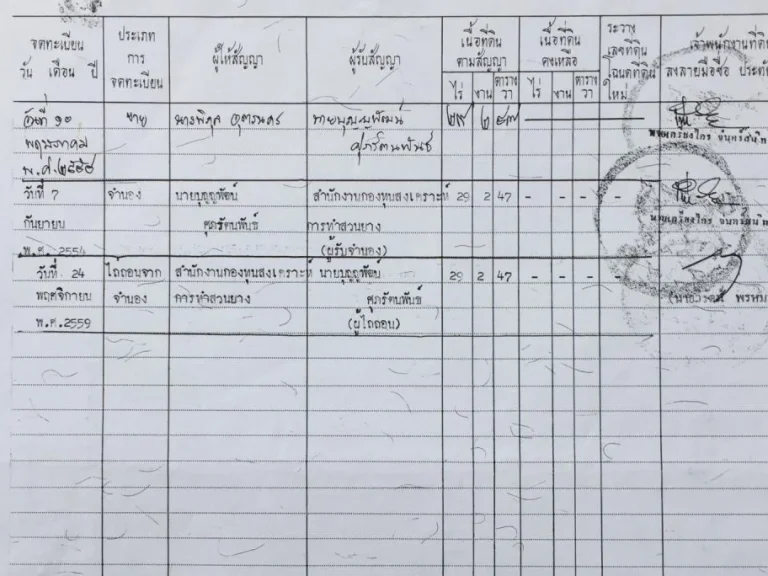 จดทะเบียน วัน เดือน ปี
ประเภท การ จดทะเบียน
ผู้ให้สัญญา
ผู้รับสัญญา
เนื้อที่ดิน ตามสัญญา
ไร่ งาน ตาราง วา
เนื้อที่ดิน คงเหลือ
ไร่ งาน ตาราง วา
ระวาง เลขที่ดิน โฉนดที่ดิน ใหม่
เจ้าพนักงานที่ดิน
ลงลายมือชื่อ ประทับ
วันที่ ๑๐ ขาย นางพิกุล ๒๙ ๒ ๔๗
พฤษภาคม
พ.ศ.
วันที่ 7 จำนอง นายบุญญพัฒน์ สำนักงานกองทุนสงเคราะห์ 29 2 47 - - - -
กันยายน ศุภรัตนพันธ์ การทำสวนยาง
พ.ศ. 2554 (ผู้รับจำนอง)
วันที่ 24 ไถ่ถอนจาก สำนักงานกองทุนสงเคราะห์ นายบุญญพัฒน์ 29 2 47 - - - -
พฤศจิกายน จำนอง การทำสวนยาง ศุภรัตนพันธ์
พ.ศ.2559 (ผู้ไถ่ถอน)